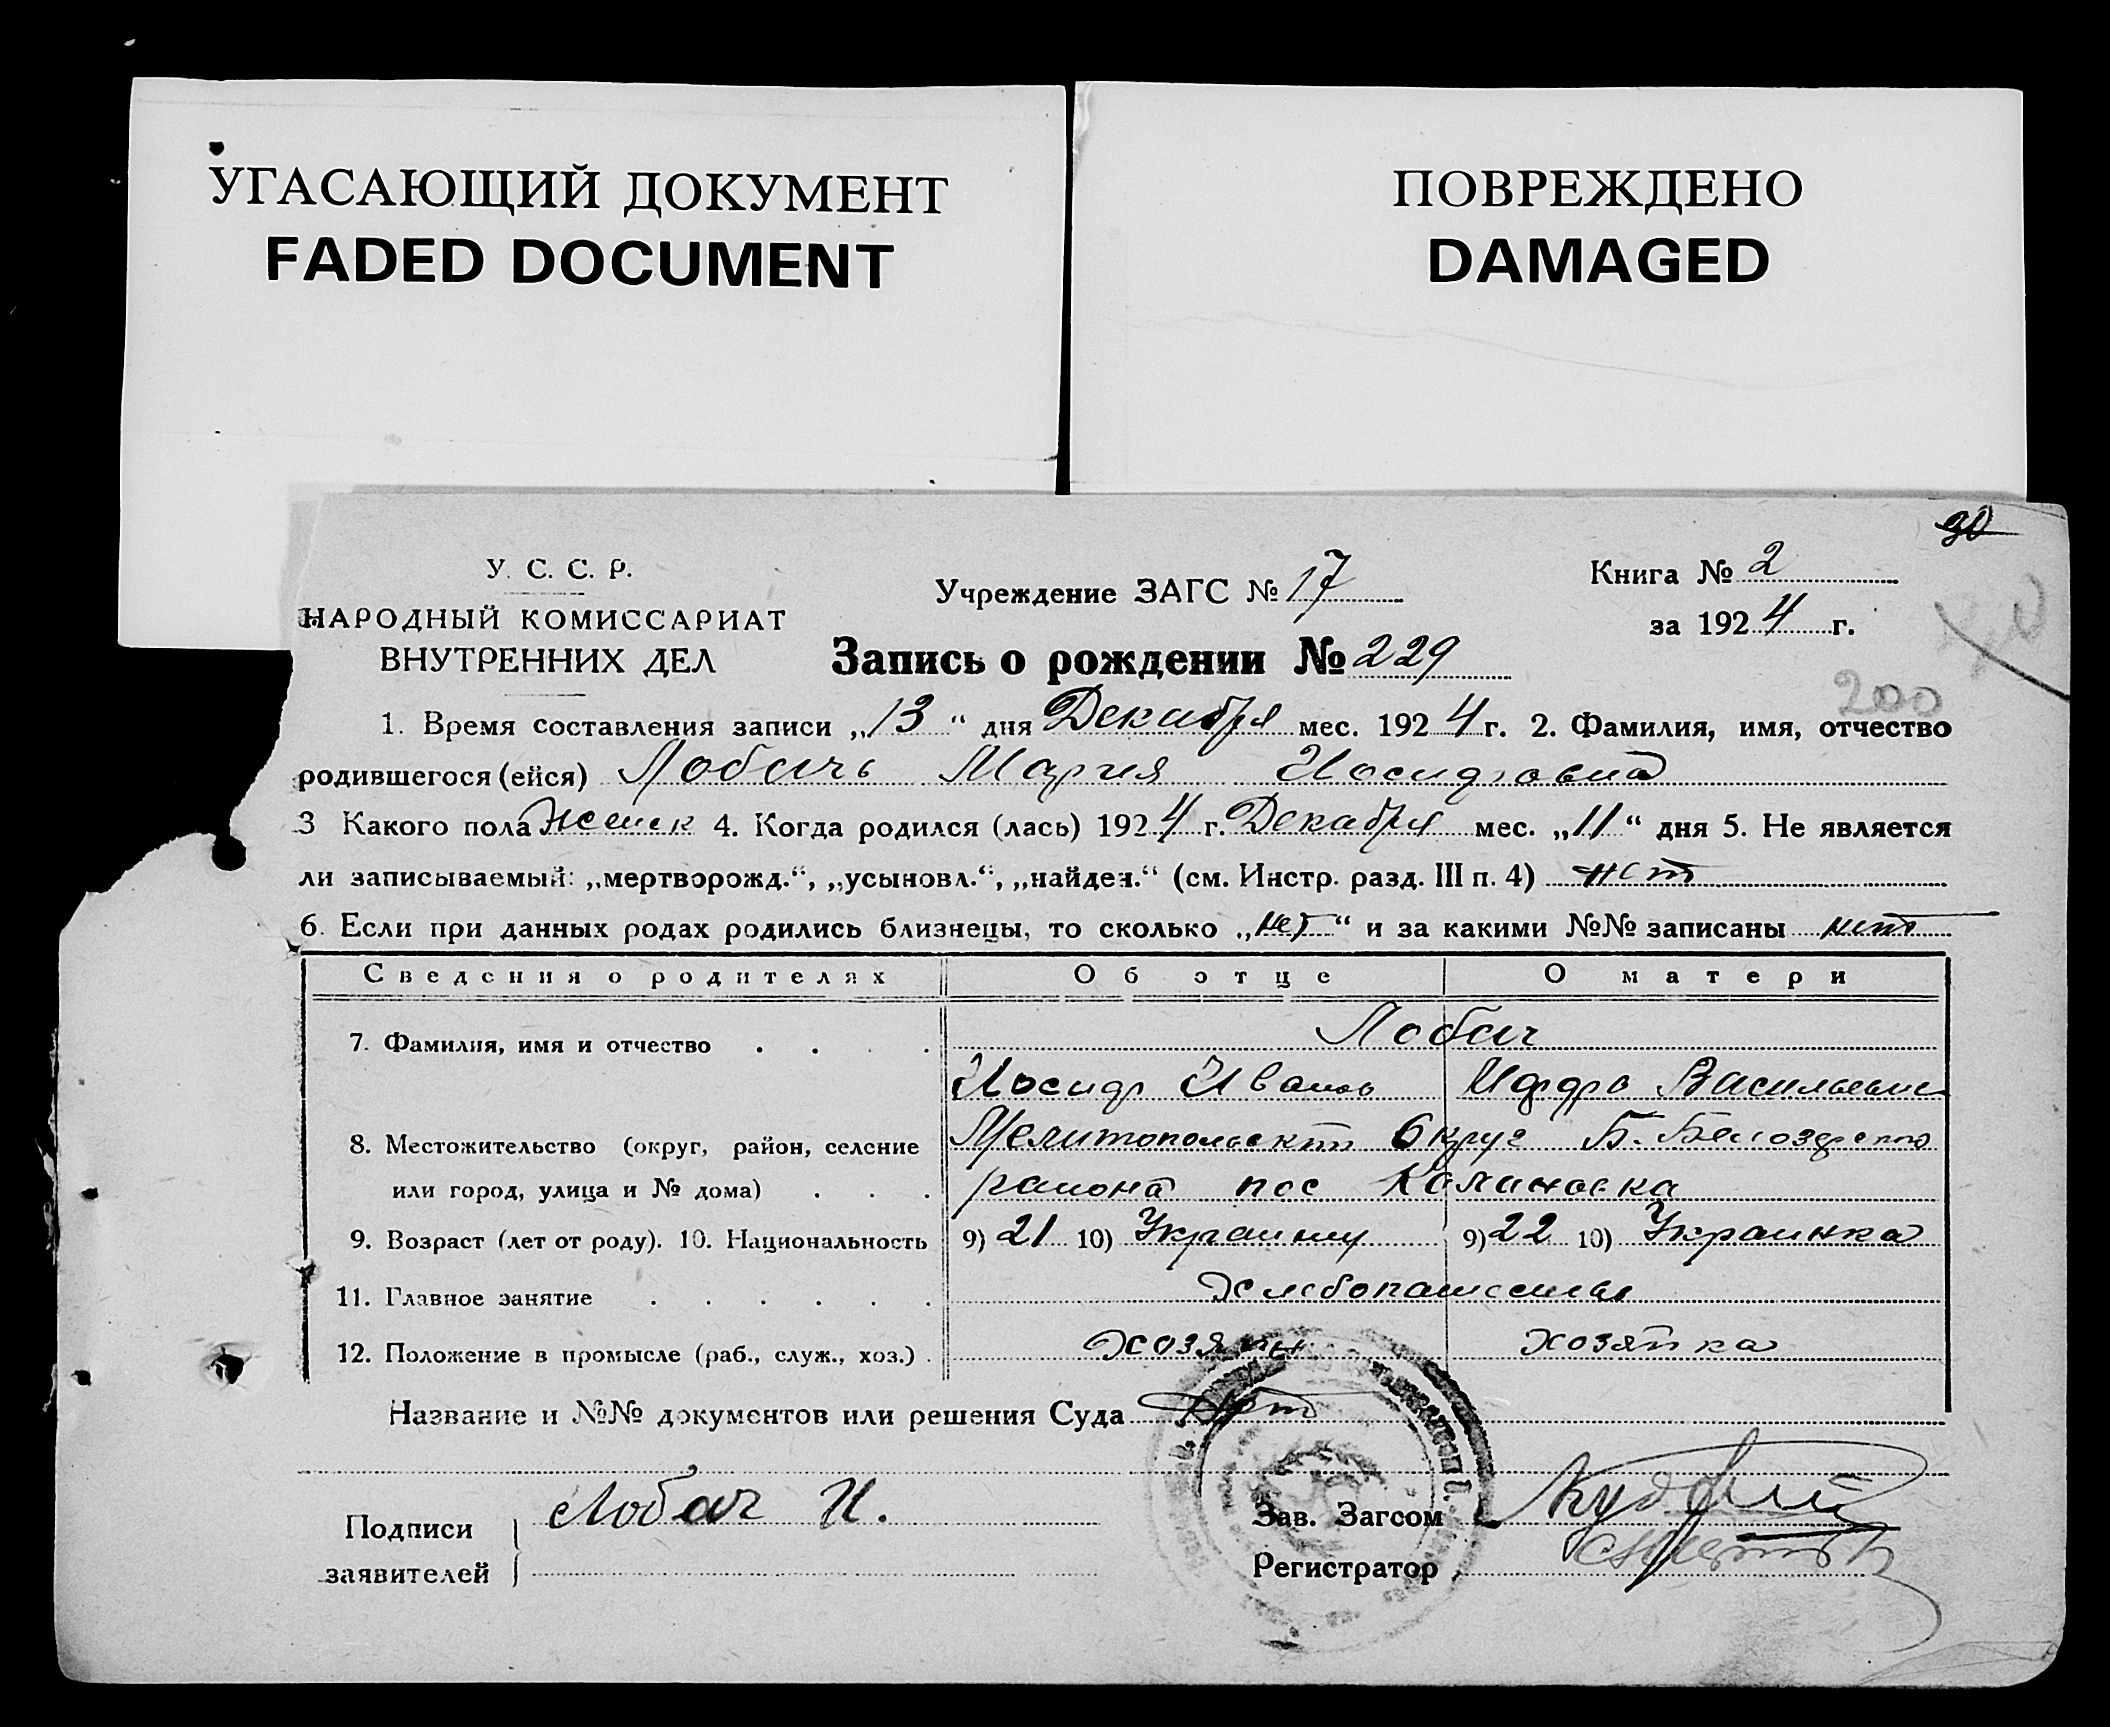 УГАСАЮЩИЙ ДОКУМЕНТ
FADED DOCUMENT
ПОВРЕЖДЕНО
DAMAGED
90
У. С. С. Р.
НАРОДНЫЙ КОМИССАРИАТ
ВНУТРЕННИХ ДЕЛ
Учреждение ЗАГС № 17
Книга № 2
за 1924 г.
Запись о рождении № 229
200
1. Время составления записи „13“ дня Декабря мес. 1924 г. 2. Фамилия, имя, отчество
родившегося (ейся) Лобачь Мария Иосифовна
3 Какого пола женск 4. Когда родился (лась) 1924 г. Декабря мес. „11“ дня 5. Не является
ли записываемый: „мертворожд.“, „усыновл.“, „найден.“ (см. Инстр. разд. III п. 4) нет
6. Если при данных родах родились близнецы, то сколько „нет“ и за какими №№ записаны нет
Сведения о родителях Об отце О матери
7. Фамилия, имя и отчество . . . . Лобач
Иосиф Иванов Васильевн
8. Местожительство (округ, район, селение Округ Б. Белозерского
или город, улица и № дома) . . . района пос Калиновка
9. Возраст (лет от роду). 10. Национальность 9) 21 10) Украинец 9) 22 10) Украинка
11. Главное занятие . . . . . . Хлебопашество
12. Положение в промысле (раб., служ., хоз.) . хозяин хозяйка
Название и №№ документов или решения Суда нет
Подписи Лобач И.
заявителей
Зав. Загсом
Регистратор